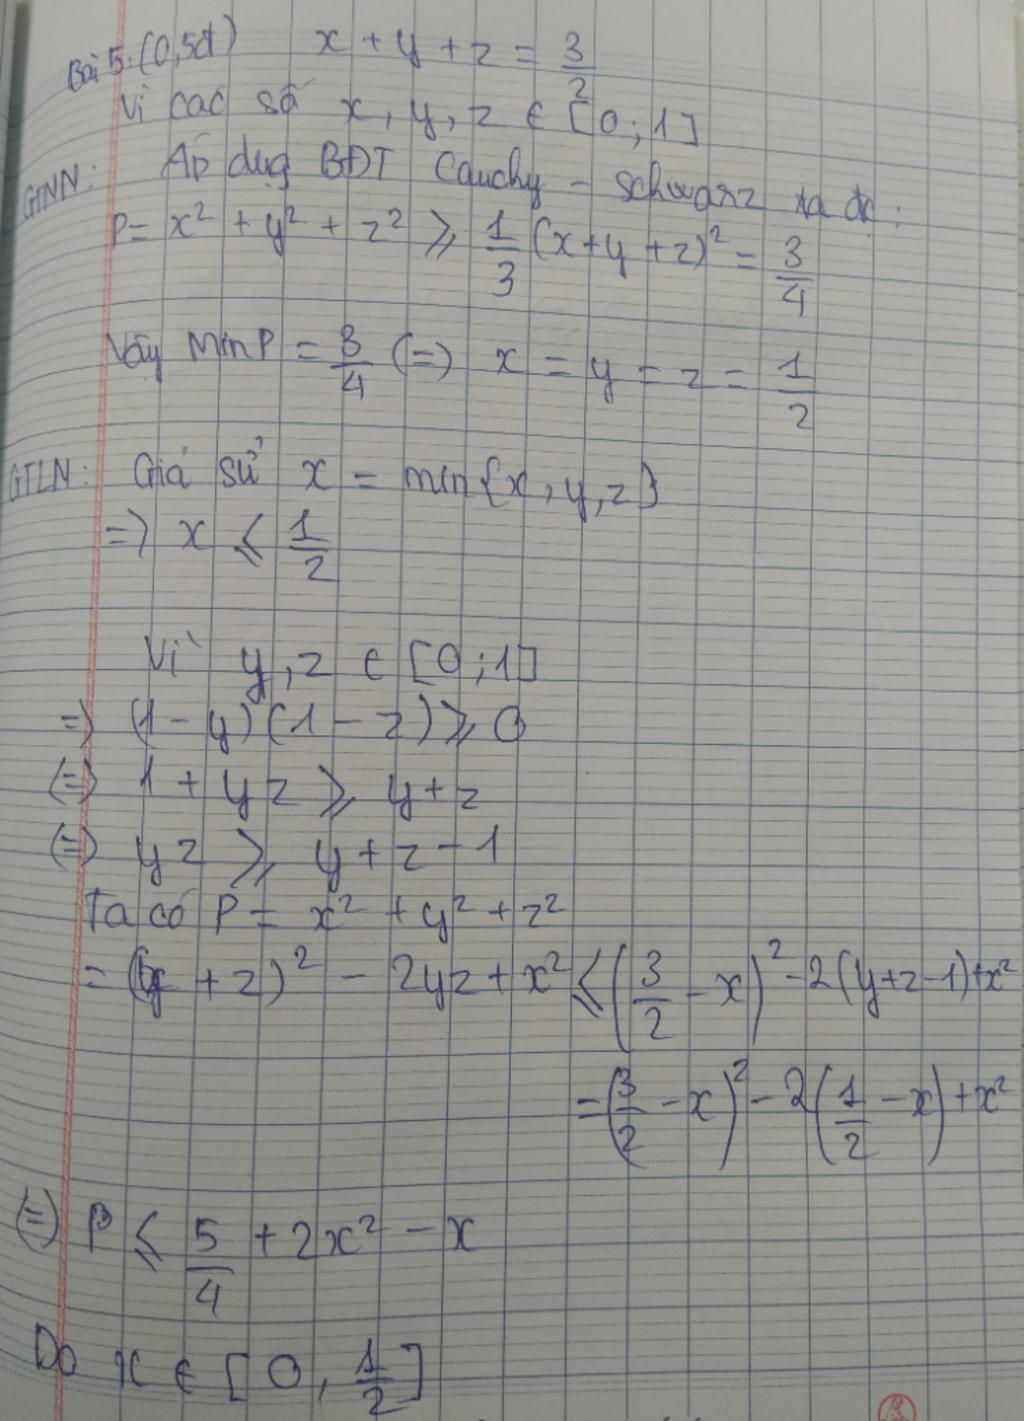 Bài 5. (0,5đ) x + y + z = 3/2
Vì các số x, y, z ∈ [0; 1]
GTNN: Áp dụg BĐT Cauchy - schwarz ta đc:
P = x² + y² + z² ⩾ 1/3 (x + y + z)² = 3/4
Vậy Min P = 3/4 (=) x = y = z = 1/2
GTLN: Giả sử x = min{x, y, z}
=> x ⩽ 1/2
Vì y, z ∈ [0; 1]
=> (1 - y)(1 - z) ⩾ 0
(=) 1 + yz ⩾ y + z
(=) yz ⩾ y + z - 1
Ta có P = x² + y² + z²
= (y + z)² - 2yz + x² ⩽ (3/2 - x)² - 2(y + z - 1) + x²
= (3/2 - x)² - 2(1/2 - x) + x²
(=) P ⩽ 5/4 + 2x² - x
Do x ∈ [0, 1/2]